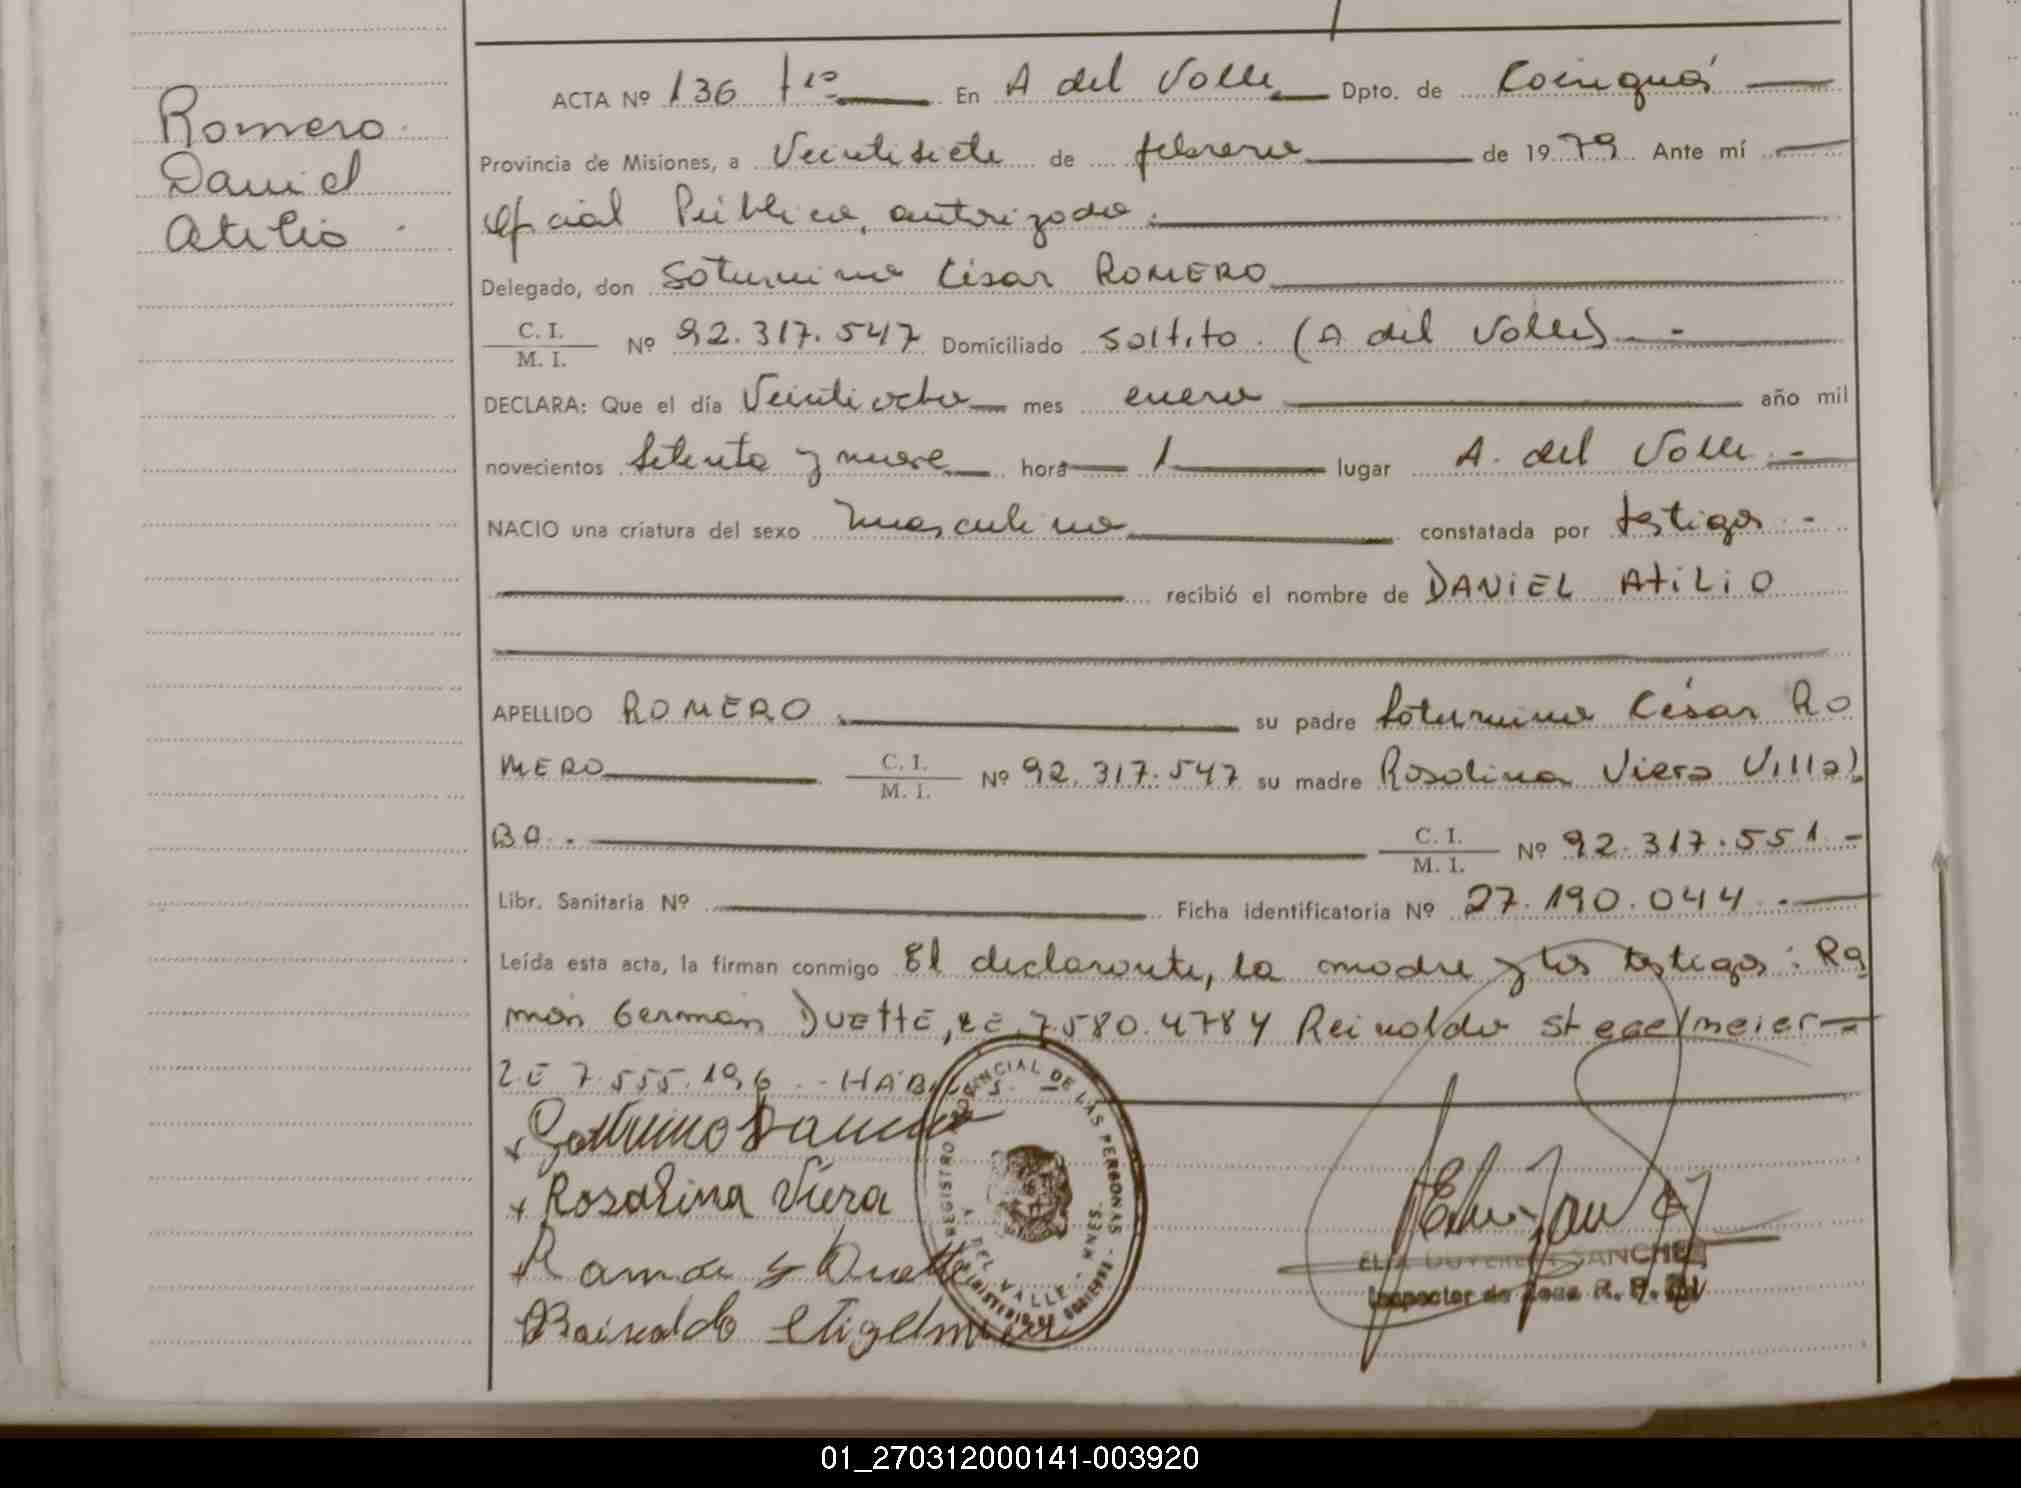 Romero
Daniel
Atilio
ACTA Nº 136 En A del Valle Dpto. de Cainguás
Provincia de Misiones, a Veintisiete de febrero de 1979 Ante mí
oficial Público autorizado
Delegado, don Saturnino César ROMERO
C. I.
M. I.
Nº 92.317.547 Domiciliado Saltito. (A del Valle)
DECLARA: Que el día Veintiocho mes enero año mil
novecientos Setenta y nueve hora 1 lugar A. del Valle
NACIO una criatura del sexo masculino constatada por testigos
recibió el nombre de DANIEL ATILIO
APELLIDO ROMERO su padre Saturnino César RO
MERO C. I. M. I. Nº 92.317.547 su madre Rosalina Viera Villal
BA.- C. I. M. I. Nº 92.317.551.-
Libr. Sanitaria Nº Ficha identificatoria Nº 27.190.044.-
Leída esta acta, la firman conmigo El declarante, la madre y los testigos: Ra
món Germán DUETTE, LE 7580.4784 Reinoldo
LE 7.555.196.- HÁBI
Rosalina Viera
Ramón G Duette
REGISTRO PROVINCIAL DE LAS PERSONAS
A. DEL VALLE - MNES.
SANCHEZ
Inspector de Zona R. P.
01_270312000141-003920